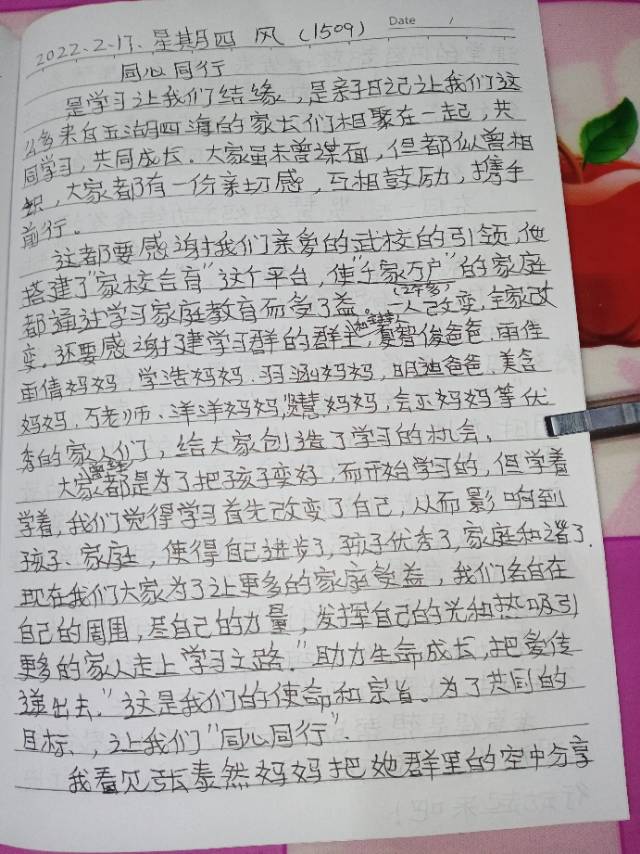 2022.2.17. 星期四 风 (1509)
Date /
同心同行
是学习让我们结缘，是亲子日记让我们这
么多来自五湖四海的家长们相聚在一起，共
同学习，共同成长。大家虽未曾谋面，但都似曾相
识，大家都有一份亲切感，互相鼓励，携手
前行。
这都要感谢我们亲爱的武校的引领，他
搭建了"家校合育"这个平台，使"千家万户"的家庭
都通过学习家庭教育而受了益。一人改变，全家改
变，还要感谢建学习群的群主，智俊爸爸，雨佳
雨倩妈妈，学浩妈妈，羽涵妈妈，明迪爸爸，美含
妈妈，石老师、洋洋妈妈，慧妈妈，会正妈妈等优
秀的家人们，给大家创造了学习的机会。
大家都是为了把孩子变好，而开始学习的，但学着
学着，我们觉得学习首先改变了自己，从而影响到
孩子、家庭，使得自己进步了，孩子优秀了，家庭和谐了.
现在我们大家为了让更多的家庭受益，我们各自在
自己的周围，尽自己的力量，发挥自己的光和热吸引
更多的家人走上"学习之路，"助力生命成长，把爱传
递出去，"这是我们的使命和宗旨。为了共同的
目标、，让我们"同心同行".
我看见张泰然妈妈把她群里的空中分享